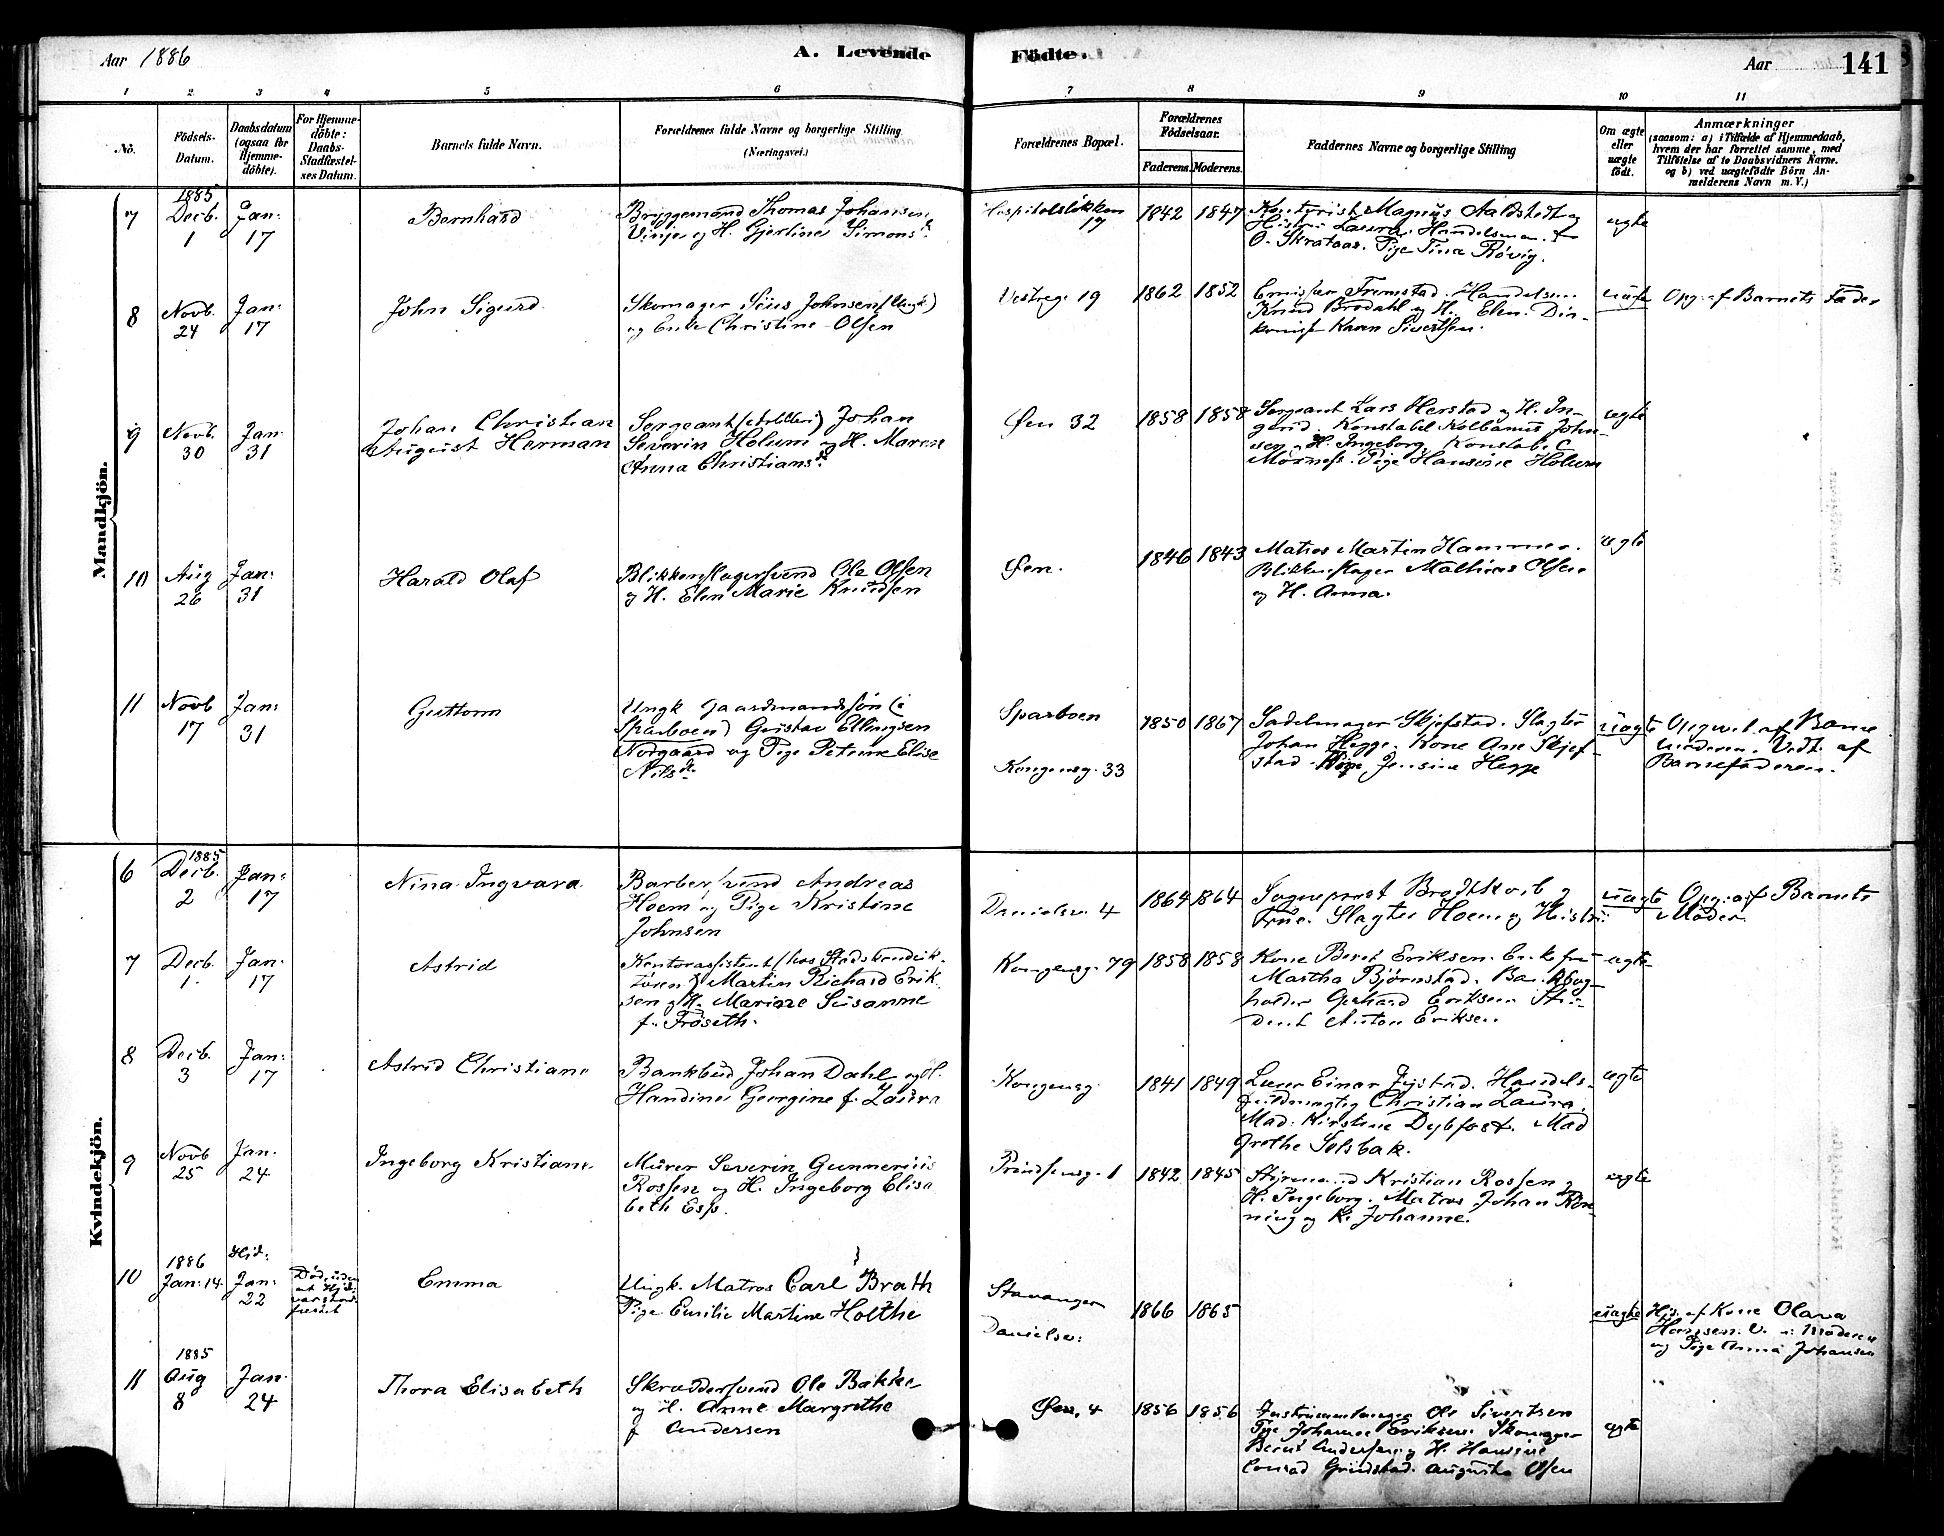 Aar 1886
A. Levende Födte.
Aar
141
1 2 3 4 5 6 7 8 9 10 11
No.
Födsels-Datum.
Daabsdatum (ogsaa for Hjemme-döbte).
For Hjemme-döbte: Daabs-Stadfæstel-ses Datum.
Barnets fulde Navn.
Forældrenes fulde Navne og borgerlige Stilling
(Næringsvei.)
Forældrenes Bopæl.
Forældrenes Födselsaar.
Faderens. Moderens.
Faddernes Navne og borgerlige Stilling
Om ægte eller uægte födt.
Anmærkninger
(saasom: a) i Tilfælde af Hjemmedaab,
hvem der har forrettet samme, med
Tilföielse af to Daabsvidners Navne.
og b) ved uægtefödte Börn An-
melderens Navn m. V.)
Mandkjön.
7
1885
Decb. 1
Jan: 17
Bernhard
Bryggemand Thomas Johansen
Vinje og H. Gjertine Simonsd.
Hospitalsløkken 17
1842 1847
Kontorist Magnus Aaldstedt og
Hustru Laura. Handelsman
O. Skrataas. Pige Tina Røvig.
ægte
8
Novb. 24
Jan: 17
John Sigurd
Skomager Sius Johnsen (Ungk)
og Enke Christine Olsen
Vestreg. 19
1862 1852
Emissær Fremstad. Handelsm.
Knud Brodahl og H. Elen. Dia-
konisse Karen Sivertsen.
uægte
Opg. af Barnets Fader
9
Novb. 30
Jan 31
Johan Christian
August Herman
Sergeant (Artilleri) Johan
Severin Holum og H. Maren
Anna Christiansd.
Øen 32
1858 1858
Sergeant Lars Herstad og H. In-
gerid. Konstabel Kolbanus John-
sen, H. Ingeborg. Konstab. C.
Mørness. Pige Hansine Holum
ægte
10
Aug 26
Jan: 31
Harald Olaf
Blikkenslagersvend Ole Olsen
og H. Elen Marie Knudsen
Øen.
1846 1843
Matros Martin Hammer.
Blikkenslager Mathias Olsen
og H. Anna.
ægte
11
Novb 17
Jan: 31
Guttorm
Ungk Gaardmandssøn (i
Sparboen) Gustav Ellingsen
Nordgaard og Pige Petrine Elise
Nilsd.
Sparboen
Kongensg. 33
1850 1867
Sadelmager Skjefstad. Slagter
Johan Hegge. Kone Ane Skjef-
stad. Pige Jensine Hegge
uægte
Opgivet af Barne
moderen. Vedt. af
Barnefaderen.
Kvindekjön.
6
1885
Decb. 2
Jan: 17
Nina Ingvara
Barbersvend Andreas
Hoem og Pige Kristine
Johnsen
Danielsv. 4
1864 1864
Sogneprest Brodtkorb og
Frue. Slagter Hoem og Hustru
uægte
Opg: af Barnets
Moder.
7
Decb. 1.
Jan: 17
Astrid
Kontorassistent (hos Stadskonduk-
tøren) Martin Richard Erik-
sen og H. Mariane Susanne
f. Frøseth.
Kongensg. 79
1858 1858
Kone Beret Eriksen. Enkefru
Martha Bjørnstad. Bankbog-
holder Gerhard Eriksen. Stu-
dent Anton Eriksen.
ægte
8
Decb. 3
Jan: 17
Astrid Christiane
Bankbud Johan Dahl og H.
Handine Georgine f. Laura
Kongensg.
1841 1849
Lærer Einar Fystad. Handels-
fuldmægtig Christian Laura.
Mad. Kirstine Dybfost. Mad
Grethe Solsbak.
ægte
9
Novb 25
Jan. 24
Ingeborg Kristiane
Murer Severin Gunnerius
Rossen og H. Ingeborg Elisa
beth Esp.
Prindsensg. 1
1842 1845
Styrmand Kristian Rossen og
H. Ingeborg. Matros Johan Røn-
ning og K. Johanne.
ægte
10
1886
Jan: 14.
Hjd: Jan: 22
Død, uden
at Hjd.
var stad-
fæstet
Emma
Ungk. Matros Carl Brath
Pige Emilie Martine Holthe
Stavanger
Danielsv:
1866 1865
uægte
Hjd. af Kone Olava
Hanssen. V. Moderen
og Pige Anna Johansen
11
1885
Aug 8
Jan. 24
Thora Elisabeth
Skræddersvend Ole Bakke
og H. Anne Margrethe
f Andersen
Øen, 4
1856 1856
Instrumentmager Ole Sivertsen
Pige Johanne Eriksen. Skomager
Bernt Andersen og H. Hansine
Conrad Grindstad. Augusta Olsen
ægte